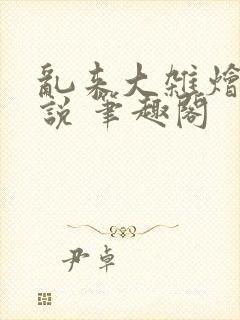 亂来大雜燴
說 筆趣閣
尹卓